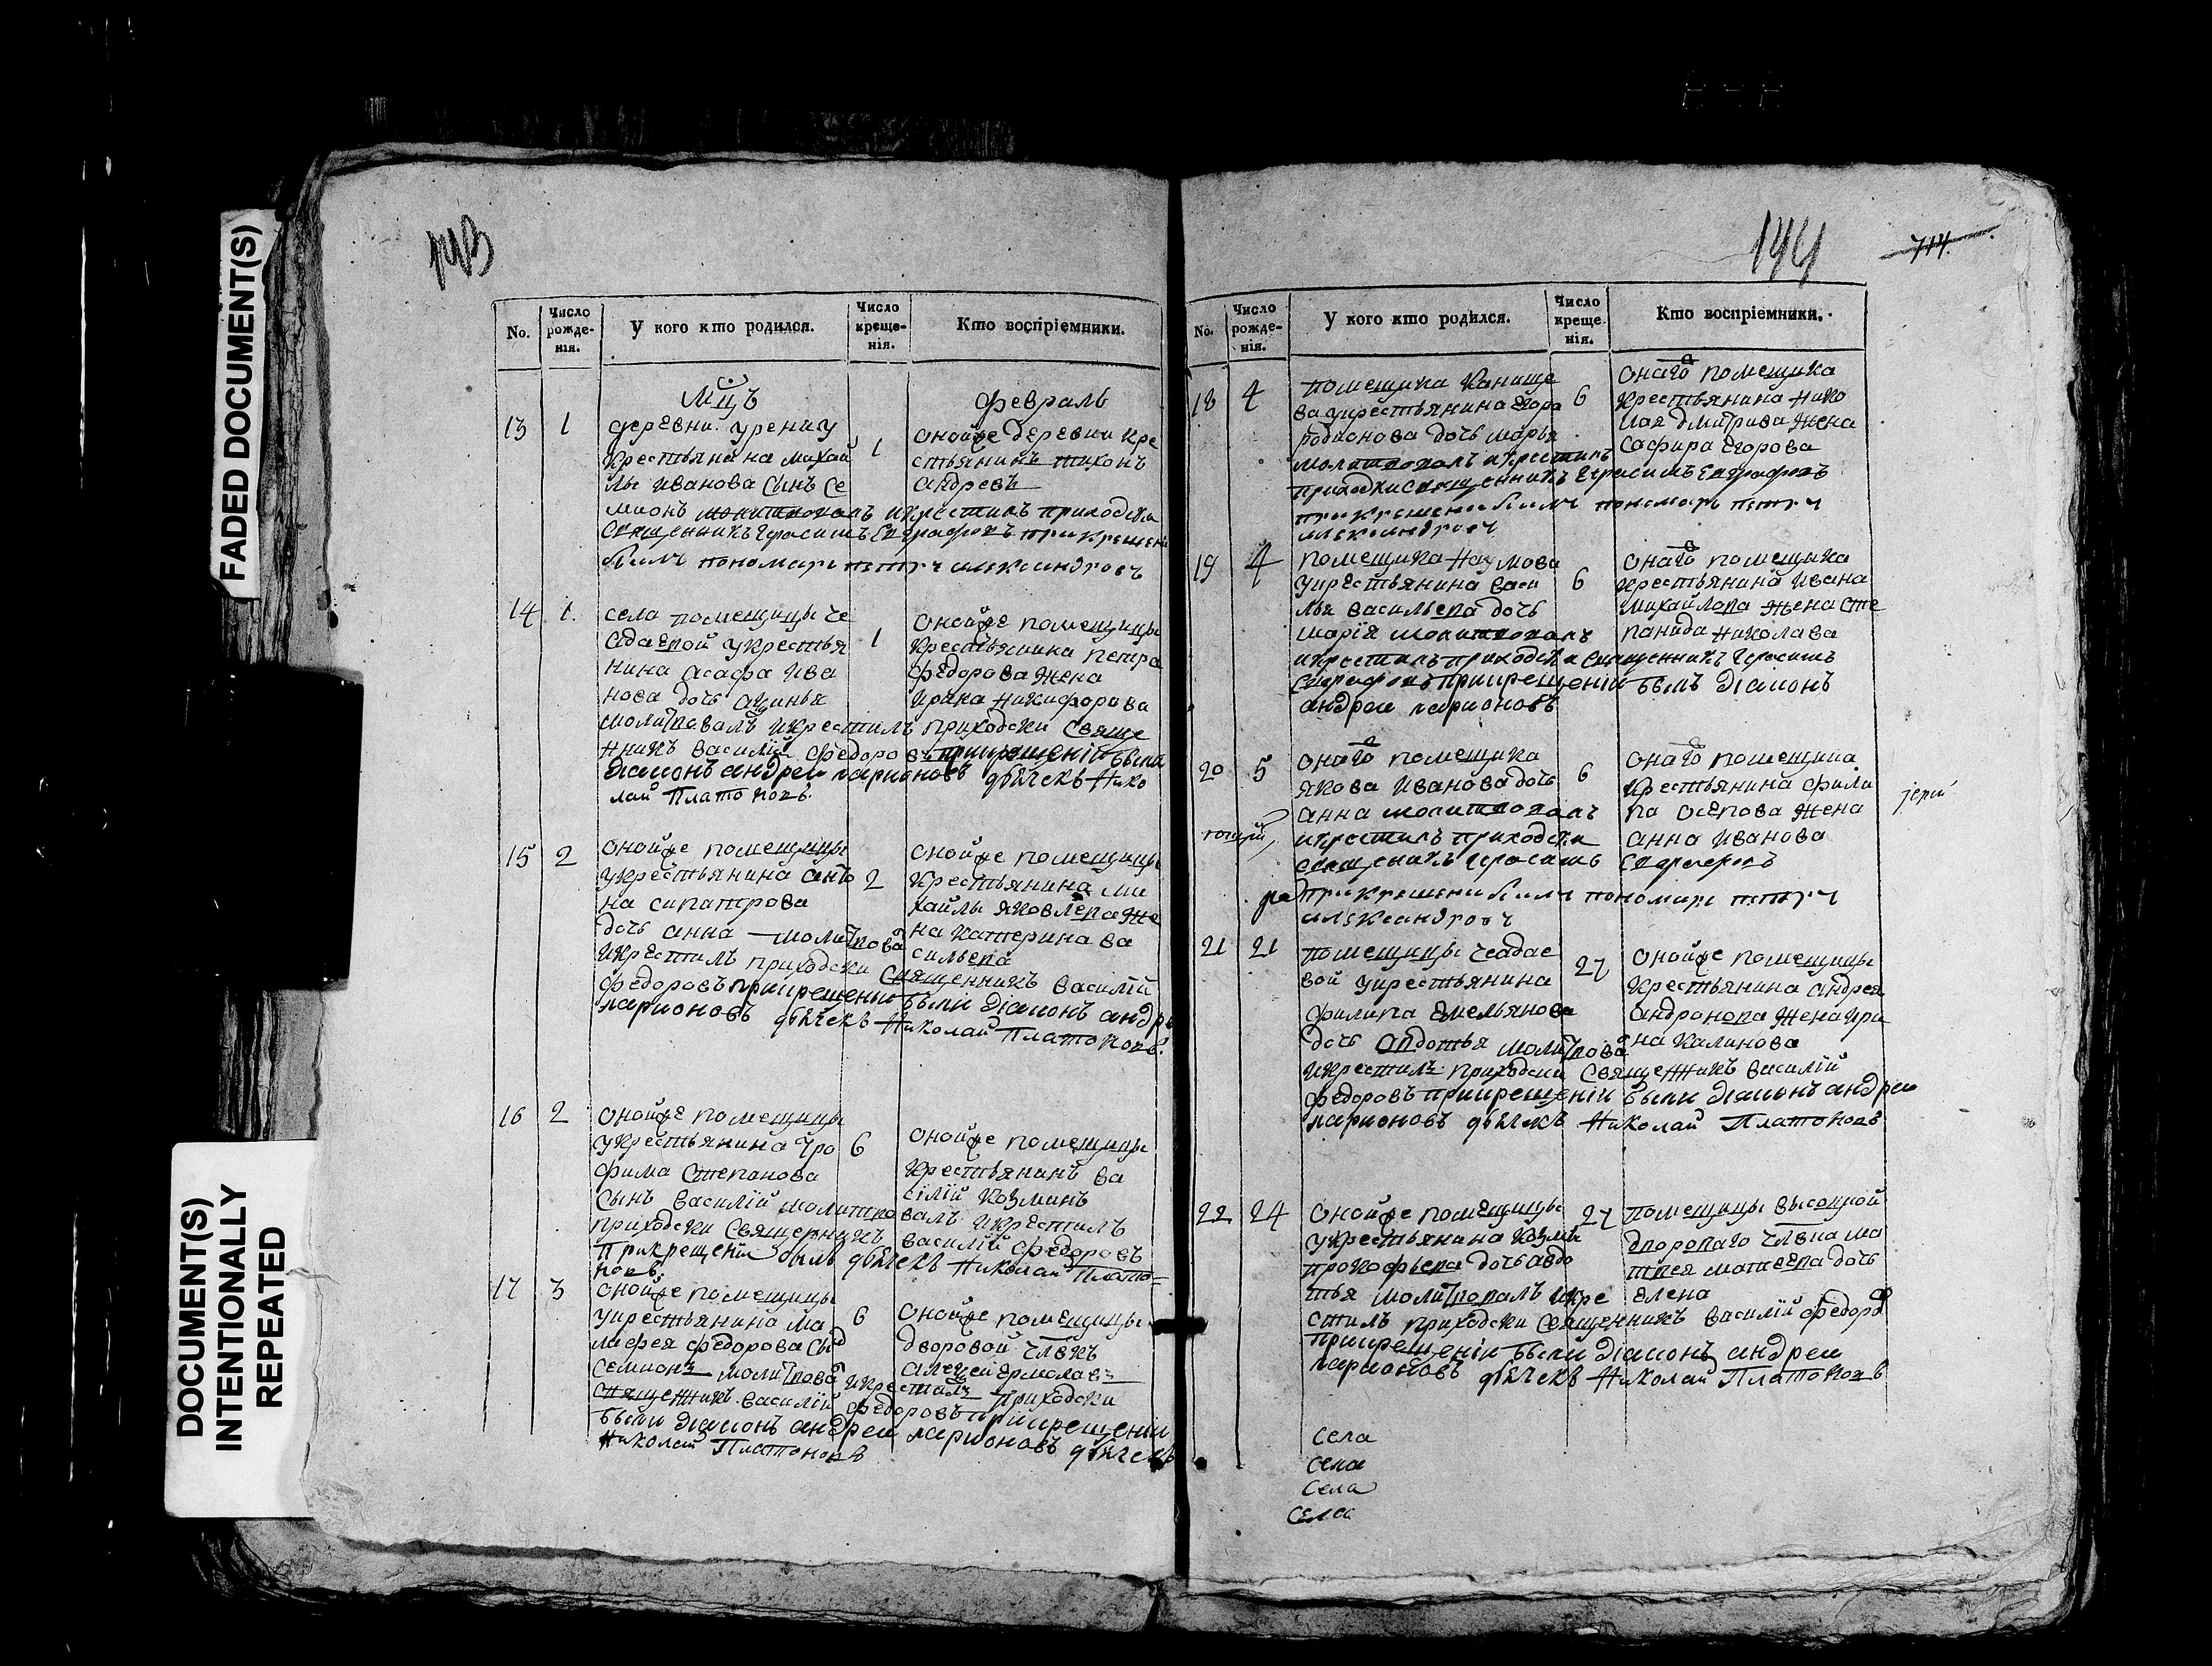 FADED DOCUMENT(S)
DOCUMENT(S)
INTENTIONALLY
REPEATED
143
No.
Число
рожде-
нія.
У кого кто родился.
Число
креще-
нія.
Кто воспріемники.
Мцъ
февраль
13 1
деревни
крестьянина михай
лы иванова сынъ се
мионъ молитвовалъ икрестилъ приходски
священникъ Герасимъ Евграфовъ прикрещени
былъ пономарь петръ александровъ
1
онойже деревни кре
стьянинъ тихонъ
андреевъ
14 1.
села помещицы че
адаевой укрестья
нина асафа ива
нова дочь
молитвовалъ икрестилъ приходски свяще
нникъ василій федоровъ прикрещеніи были
діаконъ андреи ларионовъ дьячекъ Нико
лай Платоновъ.
1
онойже помещицы
крестьянина петра
федорова жена
ирина никифорова
15 2
онойже помещицы
укрестьянина анто
на сипатрова
дочь анна молитвова
икрестилъ приходски священникъ василій
федоровъ прикрещеніи были діаконъ андре
ларионовъ дьячекъ Николай Платоновъ.
2
онойже помещицы
крестьянина ми
хайлы яковлева же
на катерина ва
сильева
16 2
онойже помещицы
укрестьянина тро
фима степанова
сынъ василій молитвовалъ икрестилъ
приходски священникъ василій федоровъ
прикрещеніи былъ дьячекъ Николай Плато=
новъ.
6
онойже помещицы
крестьянинъ ва
силій козминъ
17 3
онойже помещицы
укрестьянина ма
лафея федорова сы
семионъ молитвова икрестилъ приходски
священникъ василій федоровъ прикрещеніи
были діаконъ андреи ларионовъ дьячекъ
Николай Платоновъ
6
онойже помещицы
дворовой члвкъ
алексей ермолавъ
144
714.
No.
Число
рожде-
нія.
У кого кто родился.
Число
креще-
нія.
Кто воспріемники.
18 4
помещика Канище
ва укрестьянина егора
родионова дочь марья
молитвовалъ икрестилъ
приходски священникъ Герасимъ Евграфовъ
прикрещени былъ пономарь петръ
александровъ
6
онаго помещика
крестьянина нико
лая дмитрива жена
сафира егорова
19 4
помещика наумова
укрестьянина васи
лья васильева дочь
марія молитвовалъ
икрестилъ приходски священникъ Герасимъ
Евграфовъ прикрещеніи былъ діаконъ
андреи ларионовъ
6
онаго помещика
крестьянина ивана
михайлова жена сте
панида николава
20 5
онаго помещика
якова иванова дочь
анна молитвовалъ
икрестилъ приходски
священникъ Герасимъ Евграфовъ
прикрещени былъ пономарь петръ
александровъ
6
онаго помещика
крестьянина фили
па осепова жена
анна иванова
іереи
21 21
помещицы чеадае
вой укрестьянина
филипа емельянова
дочь авдотья молитвова
икрестилъ приходски священникъ василій
федоровъ прикрещеніи были діаконъ андреи
ларионовъ дьячекъ Николай Платоновъ
27
онойже помещицы
крестьянина андрея
андронова жена ири
на калинова
22 24
онойже помещицы
укрестьянина козми
прокофьева дочь авдо
тья молитвовалъ икре
стилъ приходски священникъ василій федоро
прикрещеніи были діаконъ андреи
ларионовъ дьячекъ Николай Платоновъ
27
помещицы высоцкой
двороваго члвка ма
твея матвева дочь
елена
села
села
села
села